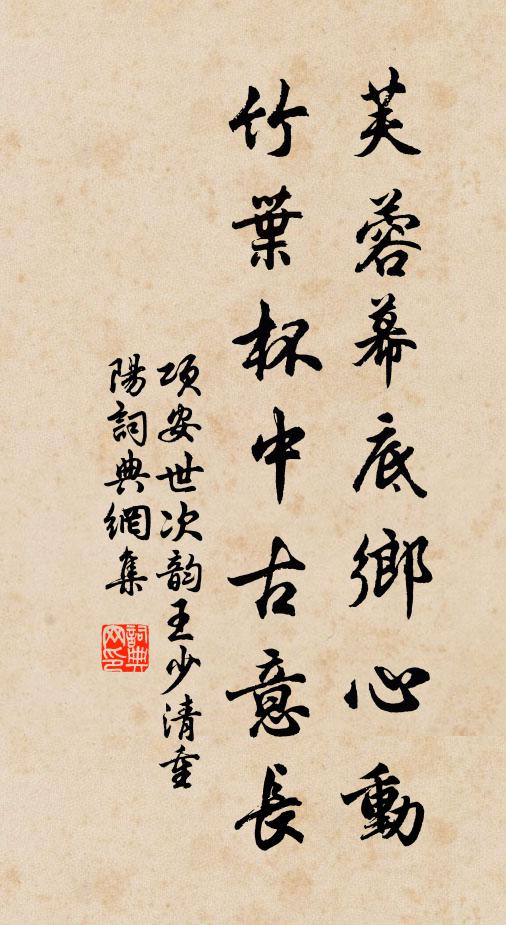 芙蓉幕底鄉心動
竹葉杯中古意長
項安世次韵王少清重
陽詞典網集
詞典網印